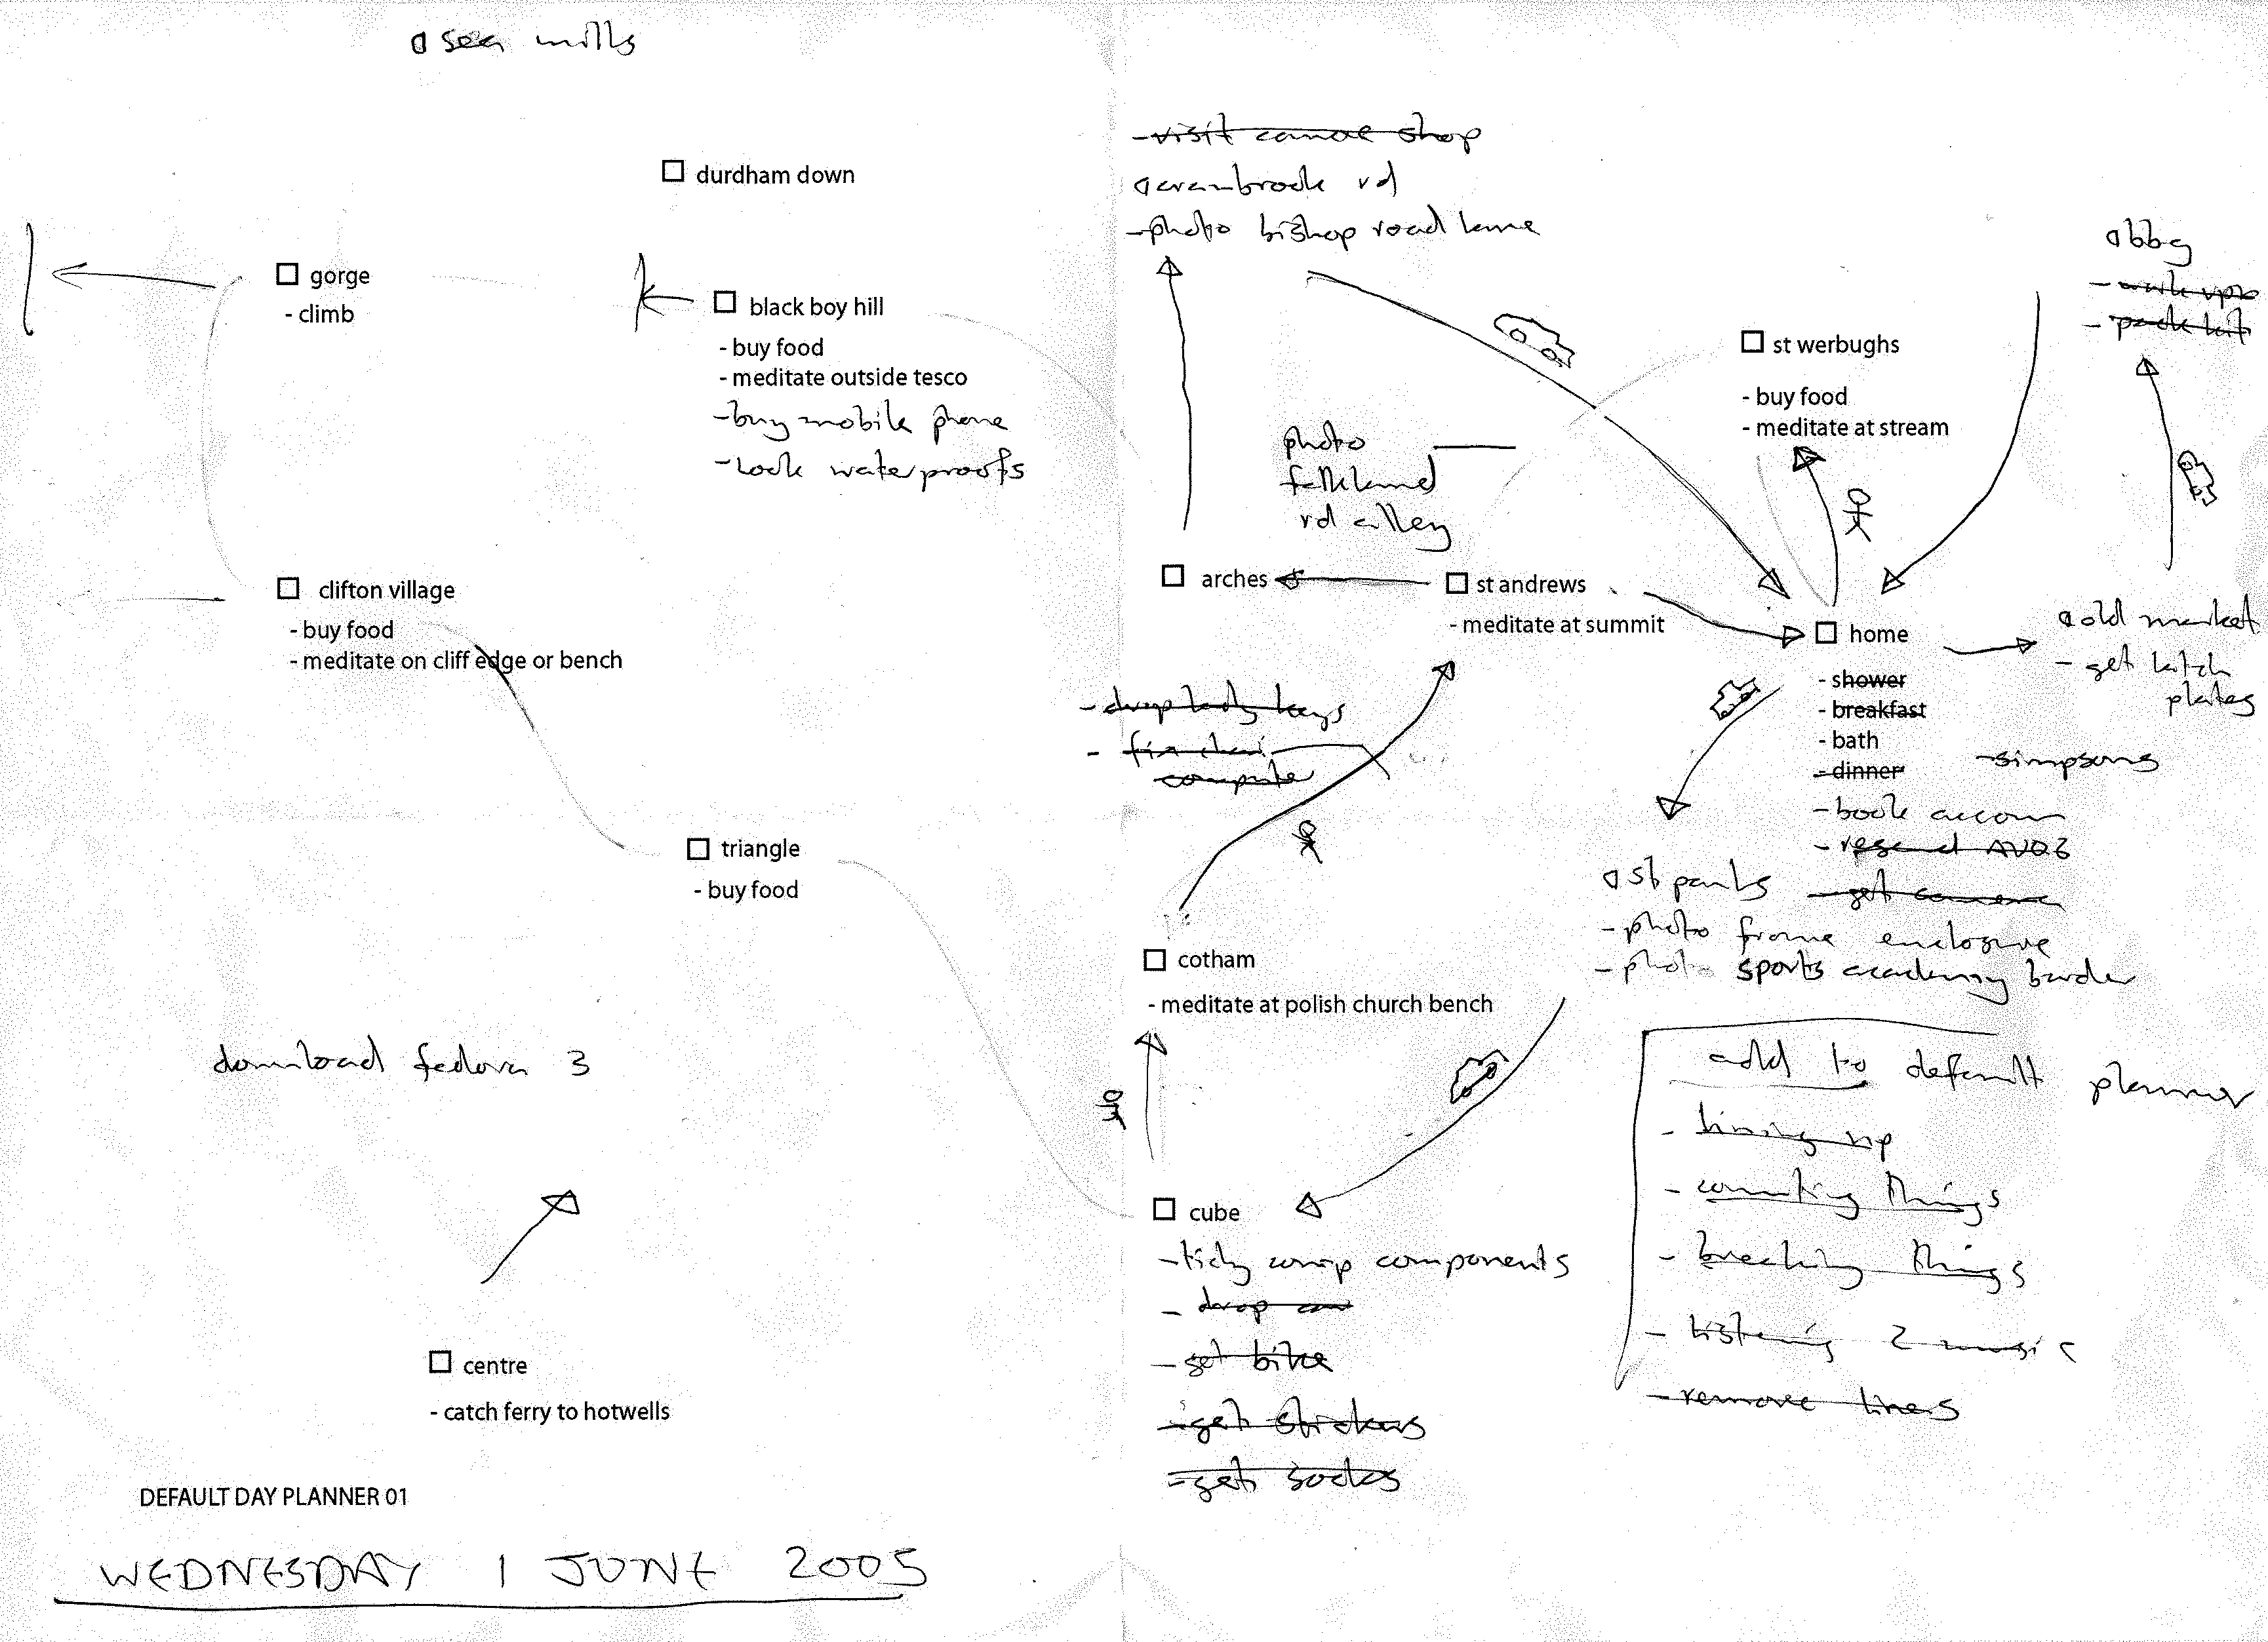 sea mills
durdham down
gorge
- climb
black boy hill
- buy food
- meditate outside tesco
- buy mobile phone
- look waterproofs
clifton village
- buy food
- meditate on cliff edge or bench
triangle
- buy food
download fedora 3
centre
- catch ferry to hotwells
DEFAULT DAY PLANNER 01
WEDNESDAY 1 JUNE 2005
- visit canoe shop
cranbrook rd
- photo bishop road lane
photo
falkland
rd alley
arches
st andrews
- meditate at summit
- drop keys
- fix
computer
cotham
- meditate at polish church bench
cube
- tidy comp components
- drop
- get bike
- get stickers
- get socks
bbg
- work
- pack kit
st werbughs
- buy food
- meditate at stream
home
- shower
- breakfast
- bath
- dinner
- simpsons
- book accom
- resend AV06
- get camera
old market
- get
plates
st pauls
- photo frome enclosure
- photo sports academy border
add to default planner
- lining up
- counting things
- breaking things
- listening 2 music
- remove lines